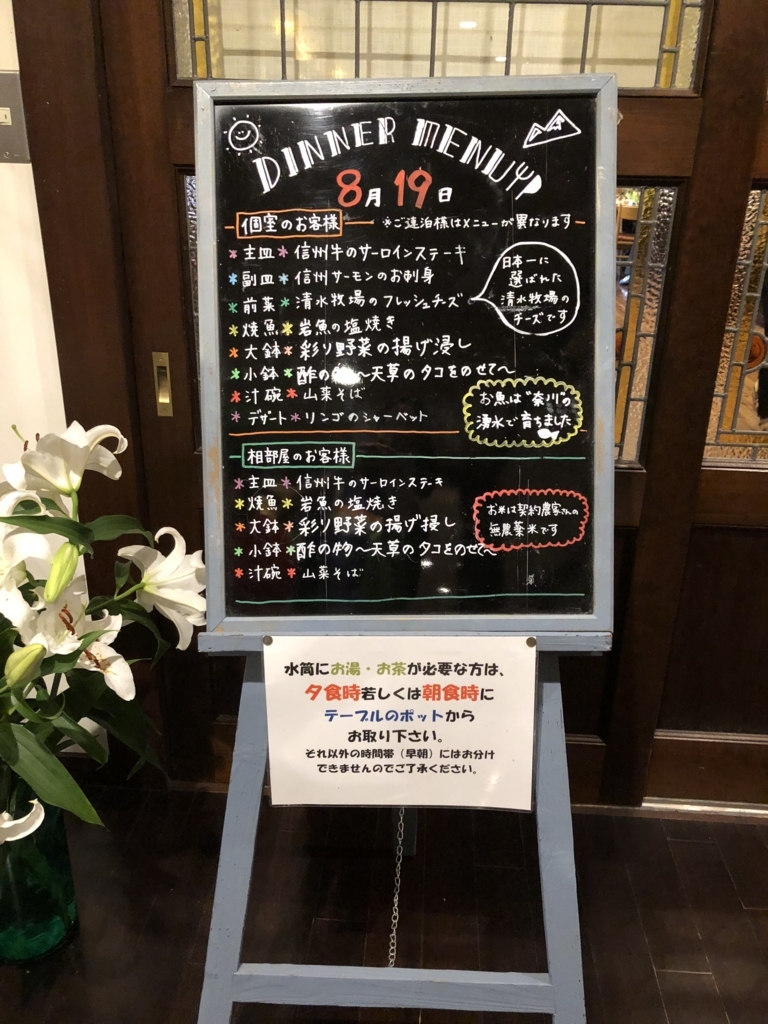 DINNER MENU
8月19日
個室のお客様 ※ご連泊様はメニューが異なります
*主皿*信州牛のサーロインステーキ
*副皿*信州サーモンのお刺身
*前菜*清水牧場のフレッシュチーズ
*焼魚*岩魚の塩焼き
*大鉢*彩り野菜の揚げ浸し
*小鉢*酢の物~天草のタコをのせて~
*汁碗*山菜そば
*デザート*リンゴのシャーベット
日本一に
選ばれた
清水牧場の
チーズです
お魚は"奈川"の
湧水で育ちました
相部屋のお客様
*主皿*信州牛のサーロインステーキ
*焼魚*岩魚の塩焼き
*大鉢*彩り野菜の揚げ浸し
*小鉢*酢の物~天草のタコをのせて~
*汁碗*山菜そば
お米は契約農家さんの
無農薬米です
水筒にお湯・お茶が必要な方は、
夕食時若しくは朝食時に
テーブルのポットから
お取り下さい。
それ以外の時間帯(早朝)にはお分け
できませんのでご了承ください。